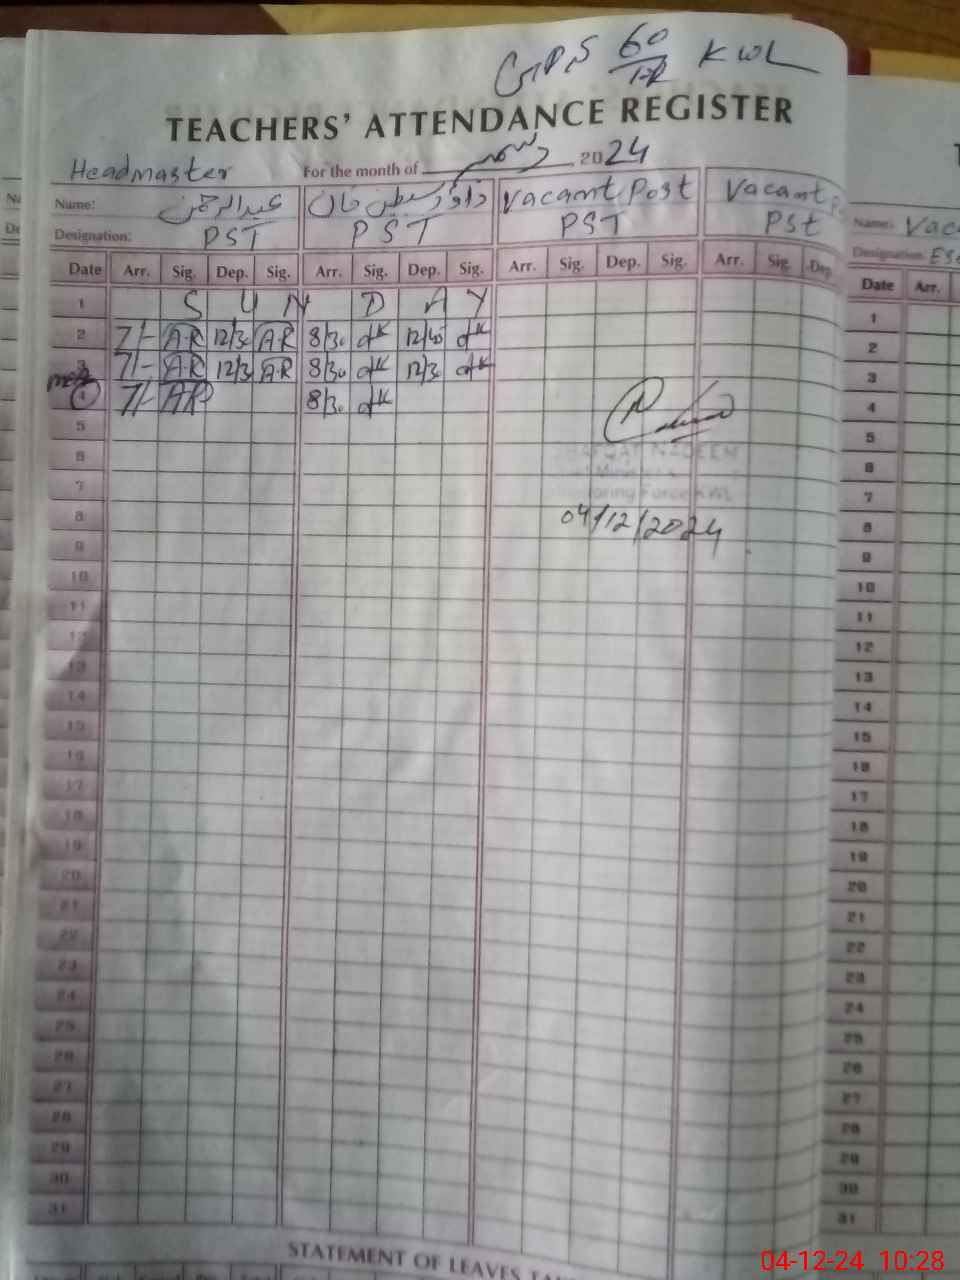 GPS 60 KWL
TEACHERS' ATTENDANCE REGISTER
Headmaster For the month of دسمبر 2024
Name: عبدالرحمن خان Vacant Post Vacant
Designation: PST PST PST PSt
Date Arr. Sig. Dep. Sig. Arr. Sig. Dep. Sig. Arr. Sig. Dep. Sig. Arr. Sig. Dep.
1 S U N D A Y
2 7/- A.R 12/30 A.R 8/30 dk 12/40 dk
3 7/- A.R 12/30 A.R 8/30 dk 12/30 dk
4 7/- AR 8/30 dk
5
6 NADEEM
7 Force KWL
8 04/12/2024
9
10
11
12
13
14
15
16
17
18
19
20
21
22
23
24
25
26
27
28
29
30
31
STATEMENT OF LEAVES
Name: Vac
Designation: ES
Date Arr.
1
2
3
4
5
6
7
8
9
10
11
12
13
14
15
16
17
18
19
20
21
22
23
24
25
26
27
28
29
30
31
04-12-24 10:28